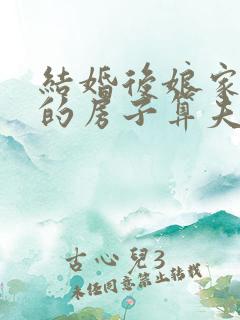 結婚後娘家
的房子算夫
古心兒3
未經同意禁止轉載